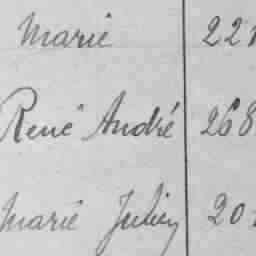 Marie 22
René André 268
Marie Julien 20